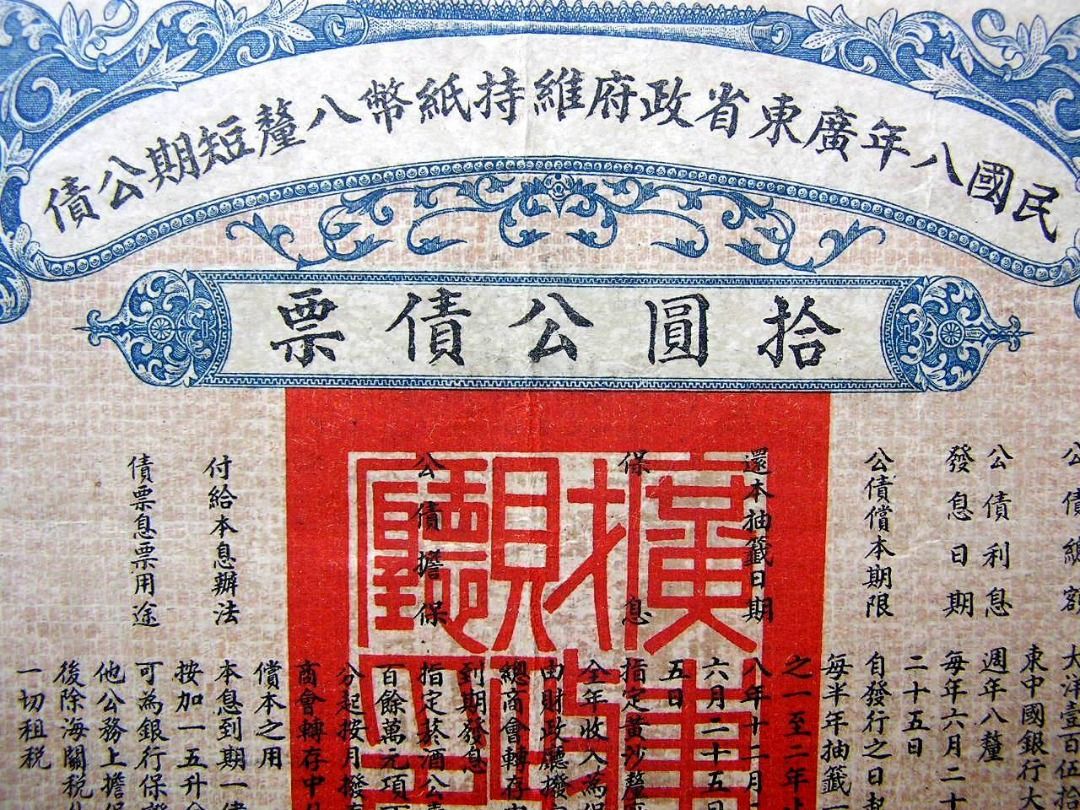 民國八年廣東省政府維持紙幣八釐短期公債
拾圓公債票
公債總額
公債利息
發息日期
公債償本期限
還本抽籤日期
保息
公債擔保
付給本息辦法
債票息票用途
大洋壹百伍拾
東中國銀行大
週年八釐
每年六月二十
二十五日
自發行之日起
每半年抽籤一
之一至二年
八年十二月二
六月二十五日
五日
指定黃沙釐
全年收入為保
由財政廳撥
總商會轉存中
到期發息
指定菸酒公賣
百餘萬元項下
分起按月撥
商會轉存中
償本之用
本息到期一
按加一五升
可為銀行保證
他公務上擔保
後除海關稅
一切租稅
廣東
財政
廳